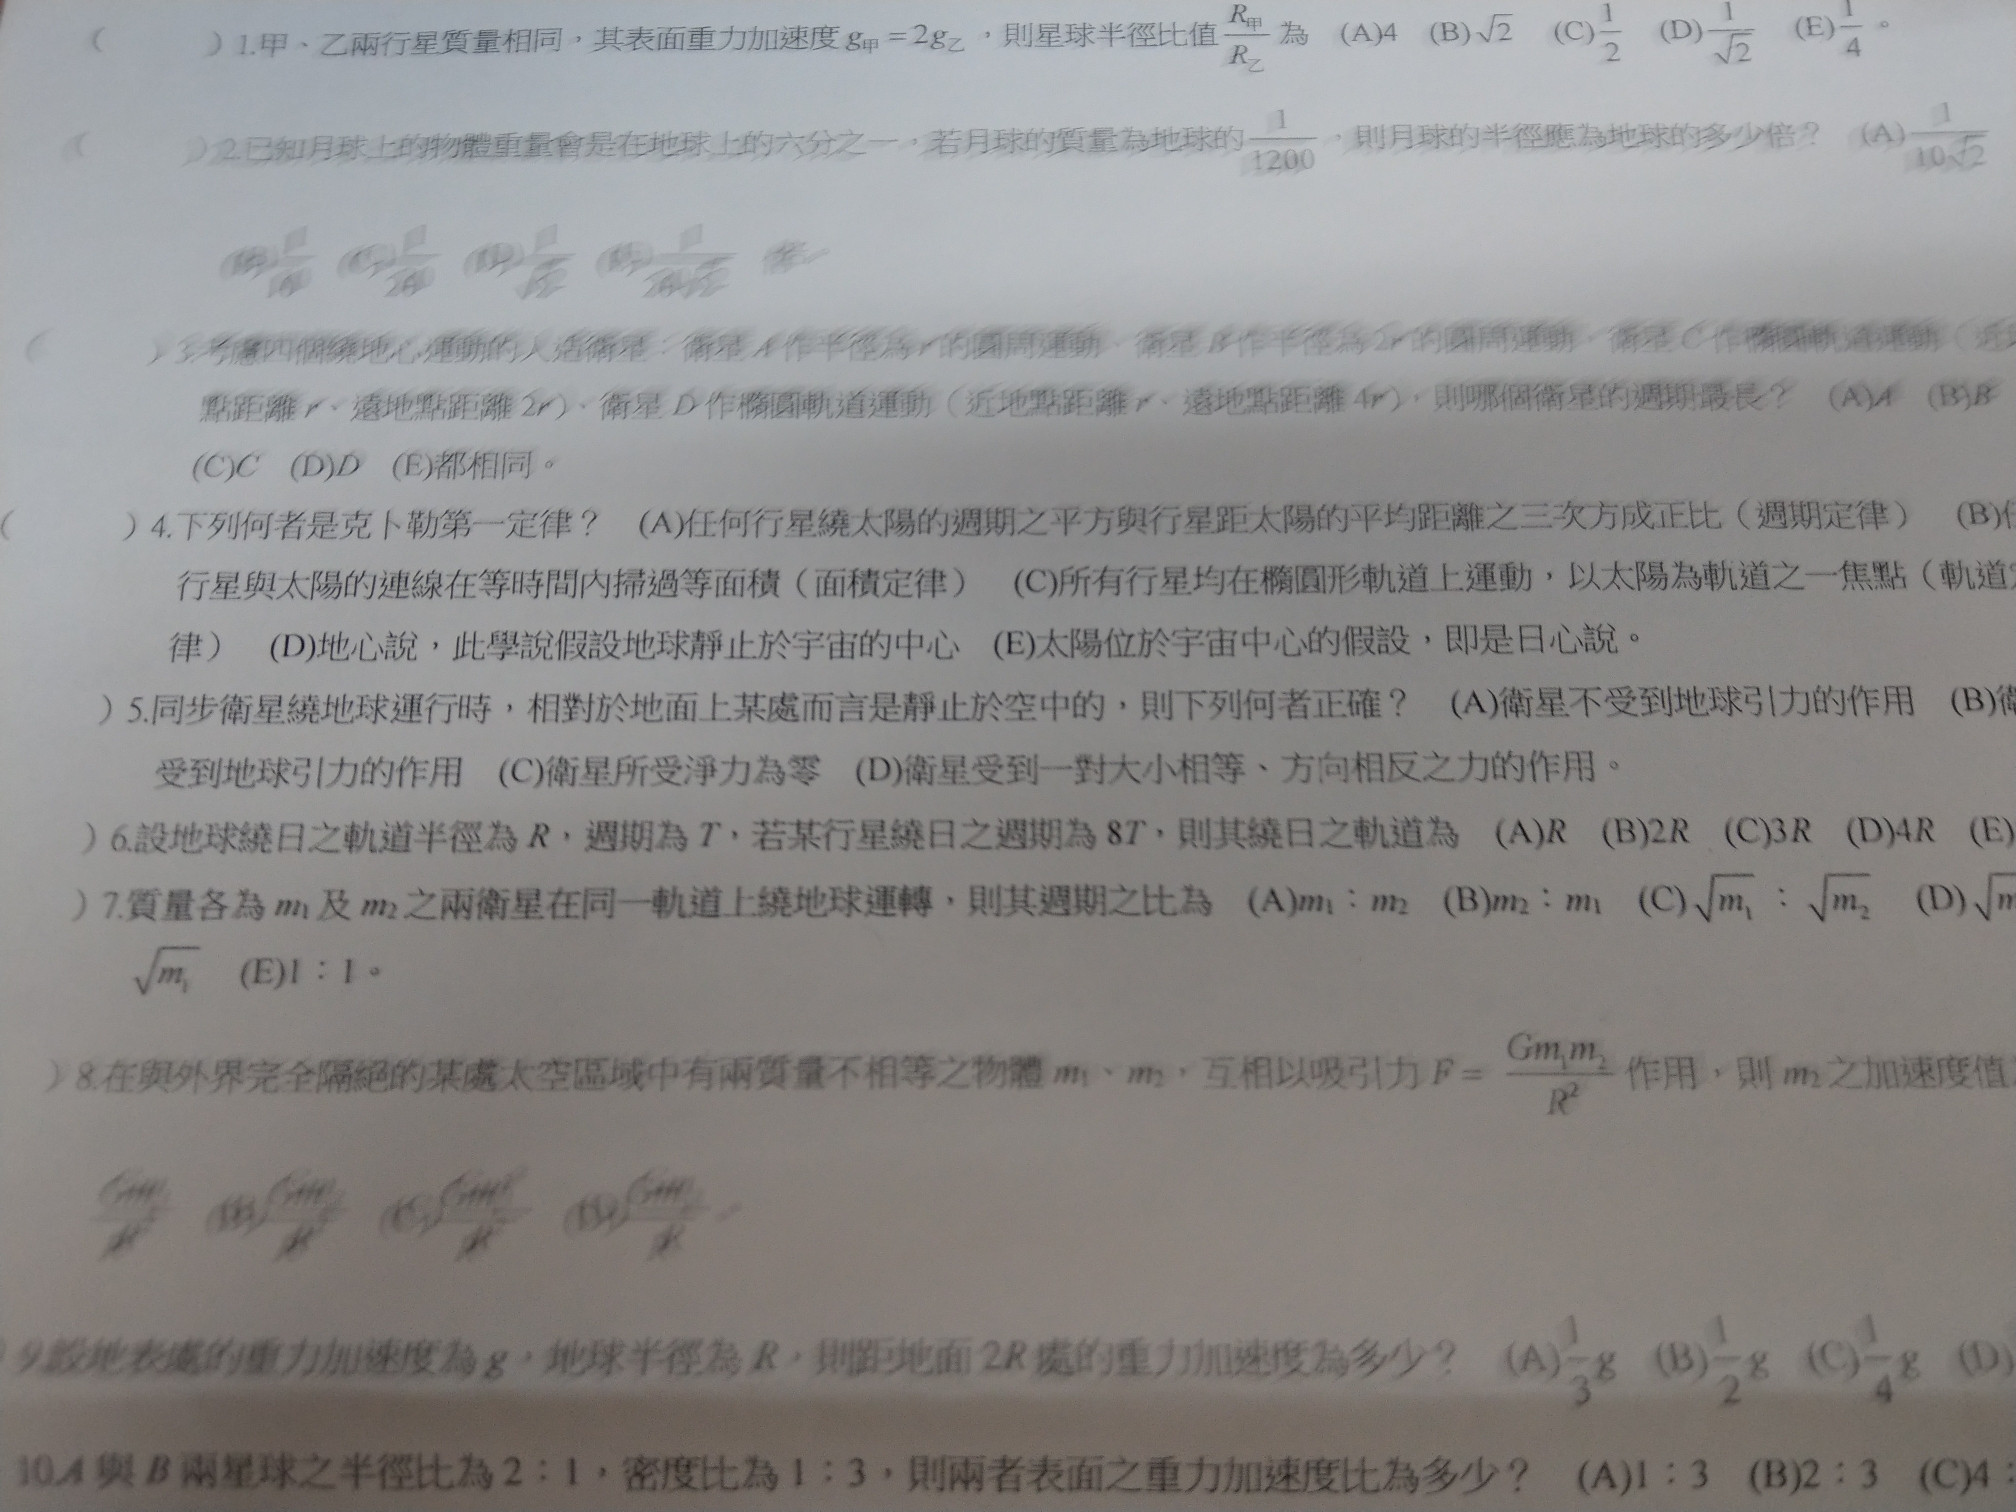 ( )1.甲、乙兩行星質量相同,其表面重力加速度 g甲 = 2g乙 ,則星球半徑比值 R甲/R乙 為 (A)4 (B)√2 (C)1/2 (D)1/√2 (E)1/4 。
( )2.已知月球上的物體重量會是在地球上的六分之一,若月球的質量為地球的 1/1200 ,則月球的半徑應為地球的多少倍? (A)1/10√2
( )3.考慮四個繞地心運動的人造衛星:衛星 A 作半徑為 r 的圓周運動、衛星 B 作半徑為 2r 的圓周運動、衛星 C 作橢圓軌道運動(近
點距離 r、遠地點距離 2r)、衛星 D 作橢圓軌道運動(近地點距離 r、遠地點距離 4r),則哪個衛星的週期最長? (A)A (B)B
(C)C (D)D (E)都相同。
( )4.下列何者是克卜勒第一定律? (A)任何行星繞太陽的週期之平方與行星距太陽的平均距離之三次方成正比(週期定律) (B)
行星與太陽的連線在等時間內掃過等面積(面積定律) (C)所有行星均在橢圓形軌道上運動,以太陽為軌道之一焦點(軌道
律) (D)地心說,此學說假設地球靜止於宇宙的中心 (E)太陽位於宇宙中心的假設,即是日心說。
)5.同步衛星繞地球運行時,相對於地面上某處而言是靜止於空中的,則下列何者正確? (A)衛星不受到地球引力的作用 (B)
受到地球引力的作用 (C)衛星所受淨力為零 (D)衛星受到一對大小相等、方向相反之力的作用。
)6.設地球繞日之軌道半徑為 R,週期為 T,若某行星繞日之週期為 8T,則其繞日之軌道為 (A)R (B)2R (C)3R (D)4R (E)
)7.質量各為 m1 及 m2 之兩衛星在同一軌道上繞地球運轉,則其週期之比為 (A)m1:m2 (B)m2:m1 (C)√m1 : √m2 (D)
√m1 (E)1:1。
)8.在與外界完全隔絕的某處太空區域中有兩質量不相等之物體 m1、m2,互相以吸引力 F = Gm1m2/R² 作用,則 m2 之加速度值
9.設地表處的重力加速度為 g,地球半徑為 R,則距地面 2R 處的重力加速度為多少? (A)1/3 g (B)1/2 g (C)1/4 g (D)
10.A 與 B 兩星球之半徑比為 2:1,密度比為 1:3,則兩者表面之重力加速度比為多少? (A)1:3 (B)2:3 (C)4: